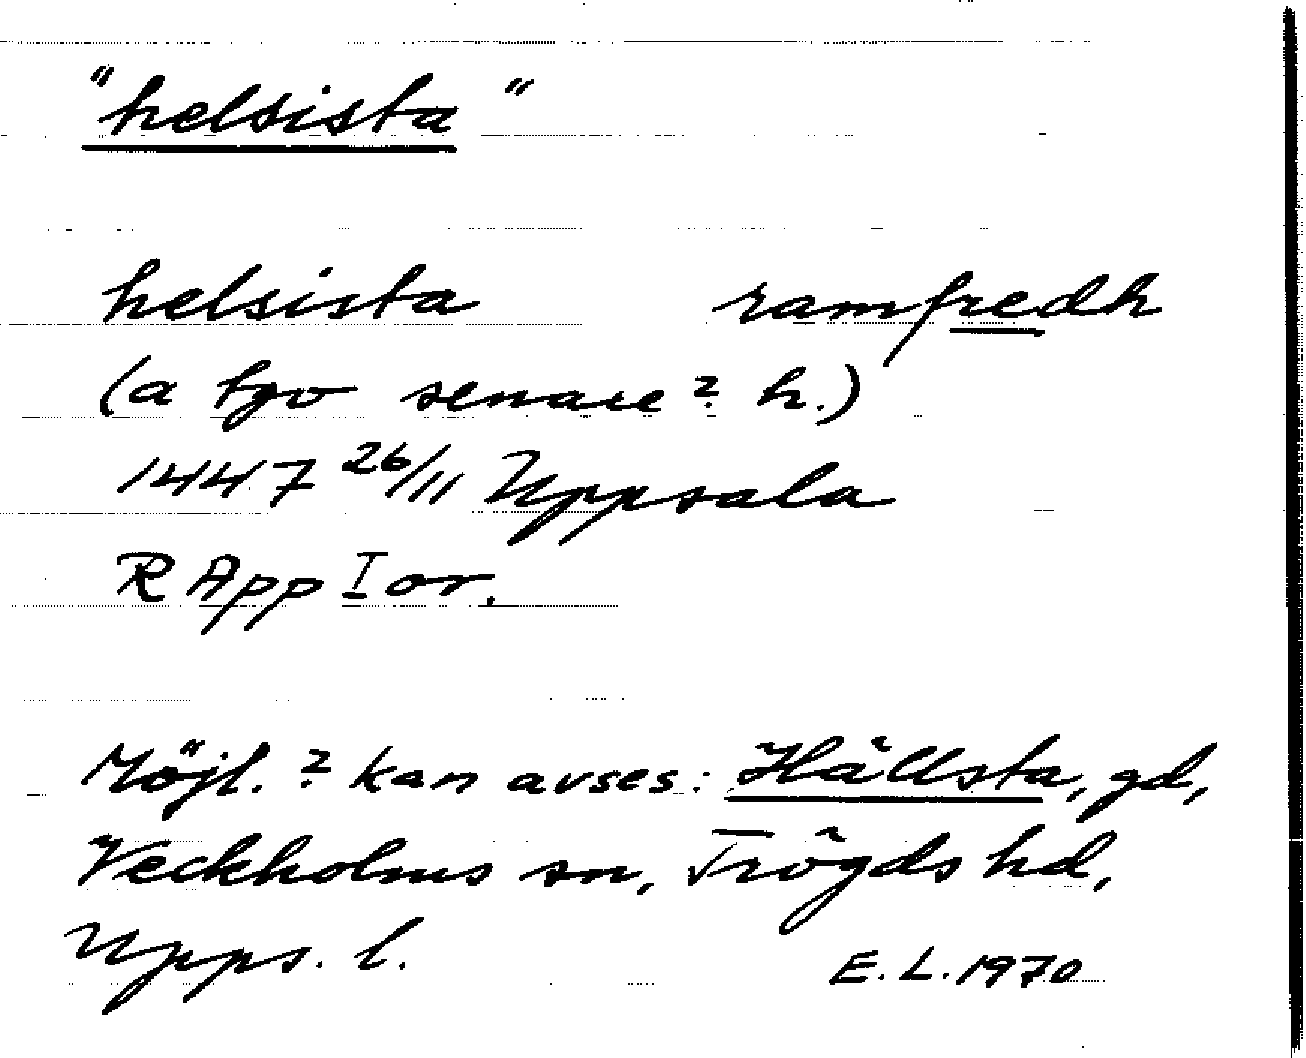 "helsista"
helsista ramfredh
(a tgv senare? h.)
1447 26/11 Uppsala
R App I or.
Möjl.? kan avses: Hällsta, gd,
Veckholms sn, Trögds hd,
Upps. l.
E. L. 1970